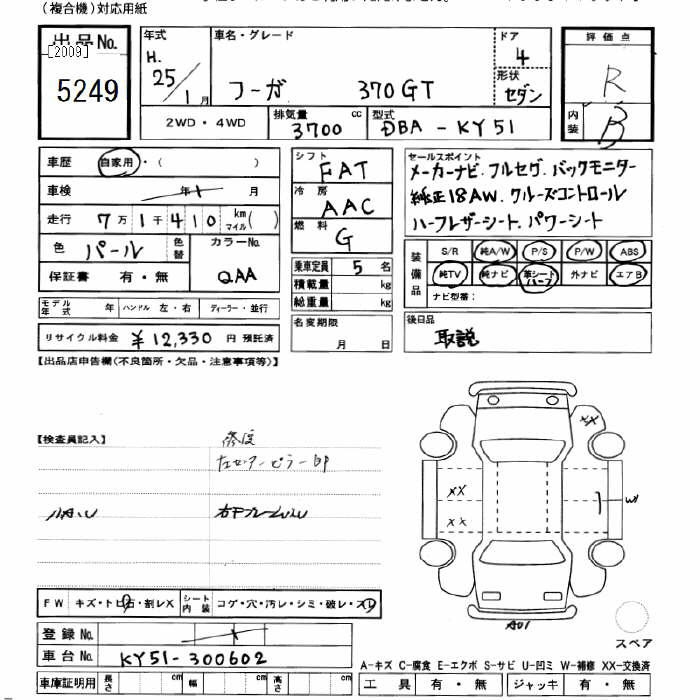 (複合機)対応用紙
出品No.
[2009]
5249
年式
H.
25/1月
車名・グレード
フーガ 370GT
ドア
4
形状
セダン
評価点
R
内装
B
2WD・4WD
排気量
3700 cc
型式
DBA-KY51
車歴
自家用・( )
車検
年 月
走行
7万1千410km
マイル( )
色
パール
色替
カラーNo.
QAA
保証書 有・無
モデル年式 年
ハンドル 左・右
ディーラー・並行
リサイクル料金 ¥12,330 円 預託済
シフト
FAT
冷房
AAC
燃料
G
乗車定員 5名
積載量 kg
総重量 kg
名変期限
月 日
セールスポイント
メーカーナビ.フルセグ.バックモニター
純正18AW.クルーズコントロール
ハーフレザーシート.パワーシート
装備品
S/R 純A/W P/S P/W ABS
純TV 純ナビ 革シート ハーフ 外ナビ エアB
ナビ型番:
後日品
取説
【出品店申告欄(不良箇所・欠品・注意事項等)】
【検査員記入】
修復
左センターピラーBP
XX
XX
XX
W
A01
スペア
FW キズ・トビ石・割レX
シート内装 コゲ・穴・汚レ・シミ・破レ・スレ
登録No.
車台No. KY51-300602
車庫証明用 長さ cm 幅 cm 高さ cm
A-キズ C-腐食 E-エクボ S-サビ U-凹ミ W-補修 XX-交換済
工具 有・無 ジャッキ 有・無